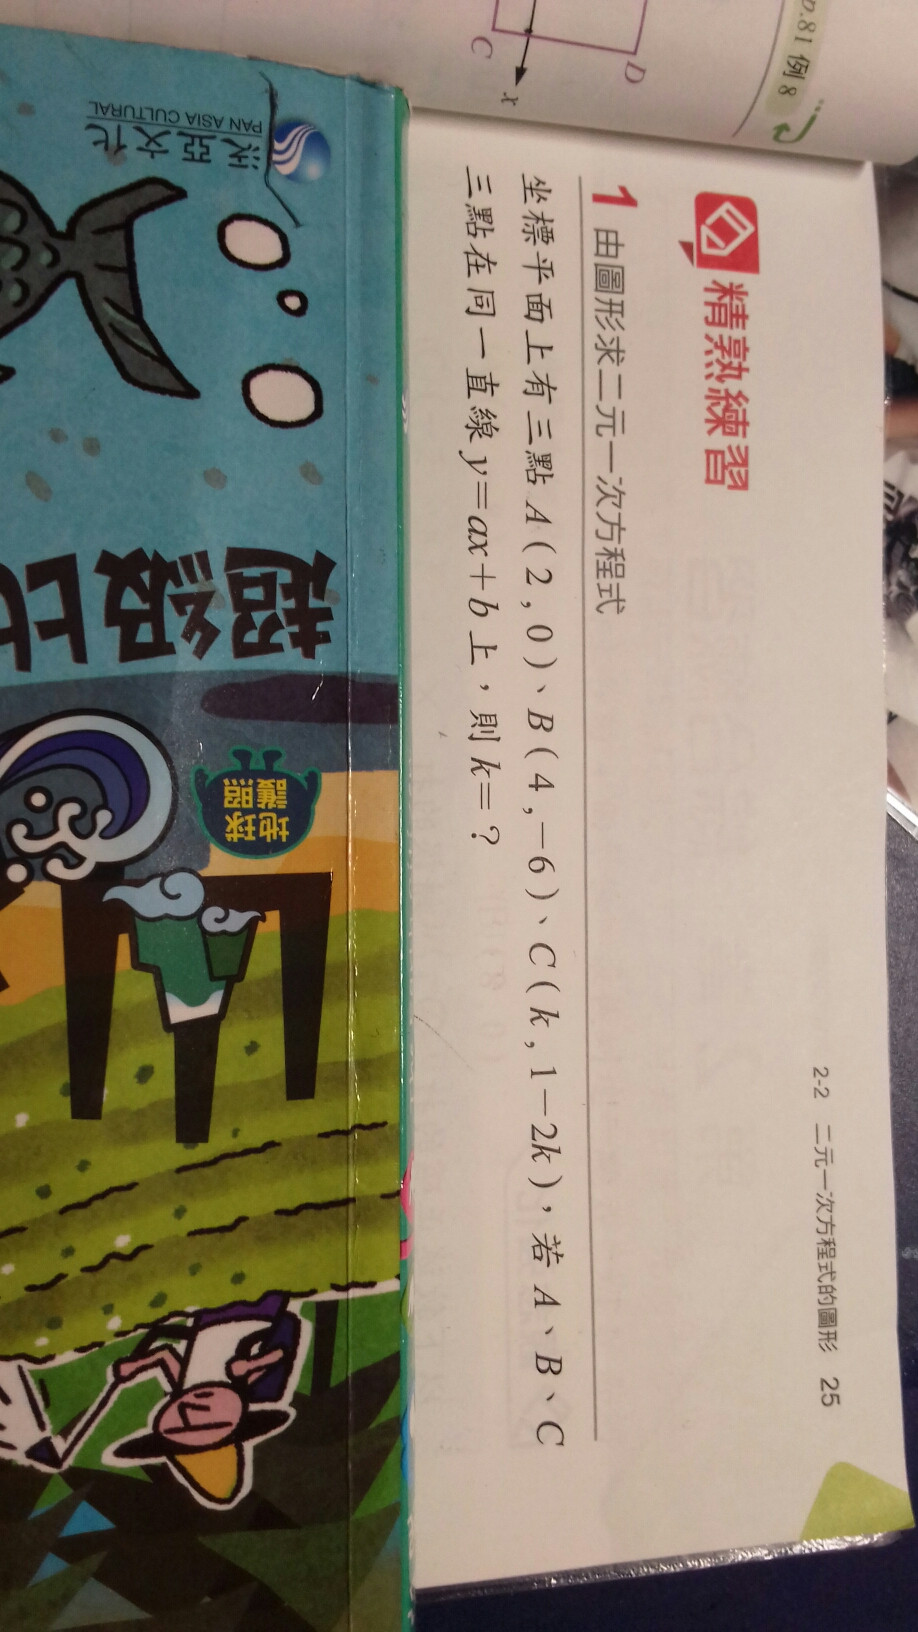 p.81 例8
D
C
x
2-2 二元一次方程式的圖形 25
精熟練習
1 由圖形求二元一次方程式
坐標平面上有三點 A(2,0)、B(4,-6)、C(k,1-2k),若 A、B、C
三點在同一直線 y=ax+b 上,則 k=?
泛亞文化
PAN ASIA CULTURAL
超級比
地球
護照